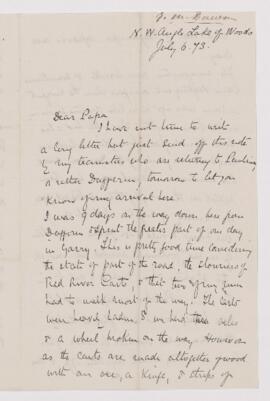 G. M. Dawson
N. W. Angle Lake of Woods
July 6. 73.
Dear Papa
I have not time to write
a long letter but just send off this note
by my teamsters who are returning to Pembina,
or rather Dufferin, tomorrow to let you
know of my arrival here.
I was 9 days on the way down here from
Dufferin & spent the greater part of one day
in Garry. This is pretty good time considering
the state of part of the road, the slowness of
Red River Carts, & that two of my men
had to walk most of the way. The carts
were heavily laden & we had three axles
& a wheel broken on the way. However
as the carts are made altogether of wood
with an axe, a knife, & strips of